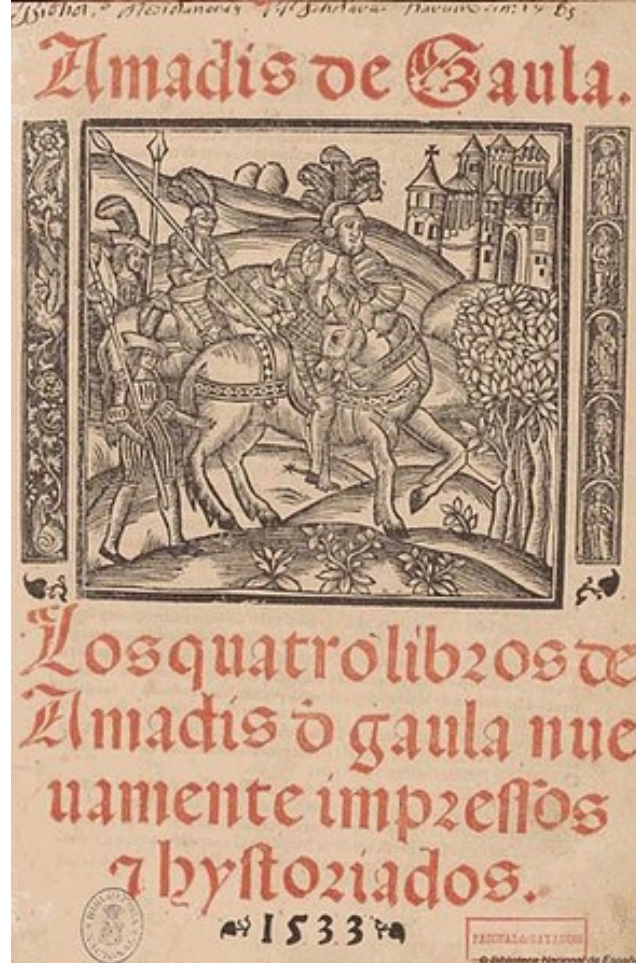 Amadis de Gaula.
Los quatro libros de
Amadis d̄ gaula nue
uamente impressos
⁊ hystoriados.
1533
BIBLIOTECA NACIONAL
PASCUAL de GAYANGOS
© Biblioteca Nacional de España